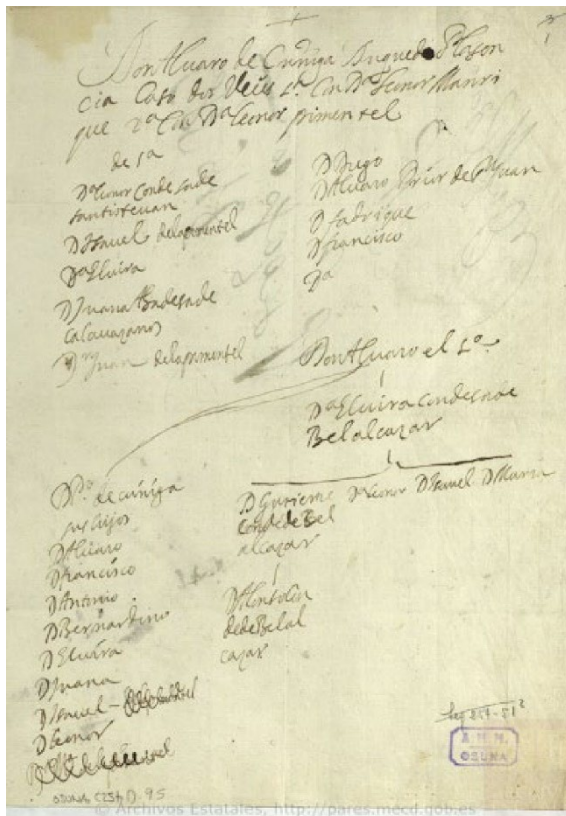 Don Alvaro de Cuñiga Duque de Plasen
cia Caso dos Veces 1ª Con Dª Leonor Manri
que 2ª Con Dª Leonor pimentel
de 1ª
Dª Leonor Condesa de
santisteuan
D Isauel de la pimentel
Dª Eluira
D Juana Condesa de
D Juan de la pimentel
D Diego
D Alvaro Prior de Sn Juan
D fadrique
D francisco
Don Alvaro el 1º
Dª Eluira Condesa de
Belalcazar
Dº de cuñiga
sus hijos
D Alvaro
D francisco
D Antonio
D Bernardino
D Eluira
D Juana
D Isauel
D Leonor
D Gutierre
conde de Bel
alcazar
Dª Leonor D Isauel D Maria
D Alonso Con
de de Belal
cazar
Leg
A. H. N.
OSUNA
OSUNA, C254, D. 95
© Archivos Estatales, http://pares.mecd.gob.es